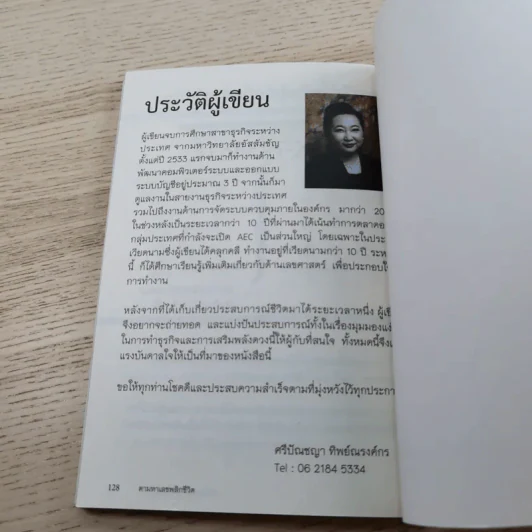 ประวัติผู้เขียน
ผู้เขียนจบการศึกษาสาขาธุรกิจระหว่าง
ประเทศ จากมหาวิทยาลัยอัสสัมชัญ
ตั้งแต่ปี 2533 แรกจบมาก็ทำงานด้าน
พัฒนาคอมพิวเตอร์ระบบและออกแบบ
ระบบบัญชีอยู่ประมาณ 3 ปี จากนั้นก็มา
ดูแลงานในสายงานธุรกิจระหว่างประเทศ
รวมไปถึงงานด้านการจัดระบบควบคุมภายในองค์กร มากว่า 20
ในช่วงหลังเป็นระยะเวลากว่า 10 ปีที่ผ่านมาได้เน้นทำการตลาดอา
กลุ่มประเทศที่กำลังจะเปิด AEC เป็นส่วนใหญ่ โดยเฉพาะในประ
เวียดนามซึ่งผู้เขียนได้คลุกคลี ทำงานอยู่ที่เวียดนามกว่า 10 ปี ระห
นี้ ก็ได้ศึกษาเรียนรู้เพิ่มเติมเกี่ยวกับด้านเลขศาสตร์ เพื่อประกอบใ
การทำงาน
หลังจากที่ได้เก็บเกี่ยวประสบการณ์ชีวิตมาได้ระยะเวลาหนึ่ง ผู้เขี
จึงอยากจะถ่ายทอด และแบ่งปันประสบการณ์ทั้งในเรื่องมุมมองแง่
ในการทำธุรกิจและการเสริมพลังดวงนี้ให้ผู้กับที่สนใจ ทั้งหมดนี้จึงเ
แรงบันดาลใจให้เป็นที่มาของหนังสือนี้
ขอให้ทุกท่านโชคดีและประสบความสำเร็จตามที่มุ่งหวังไว้ทุกประกา
ศรีปัณชญา ทิพย์ณรงค์กร
Tel : 06 2184 5334
128 ตามหาเลขพลิกชีวิต